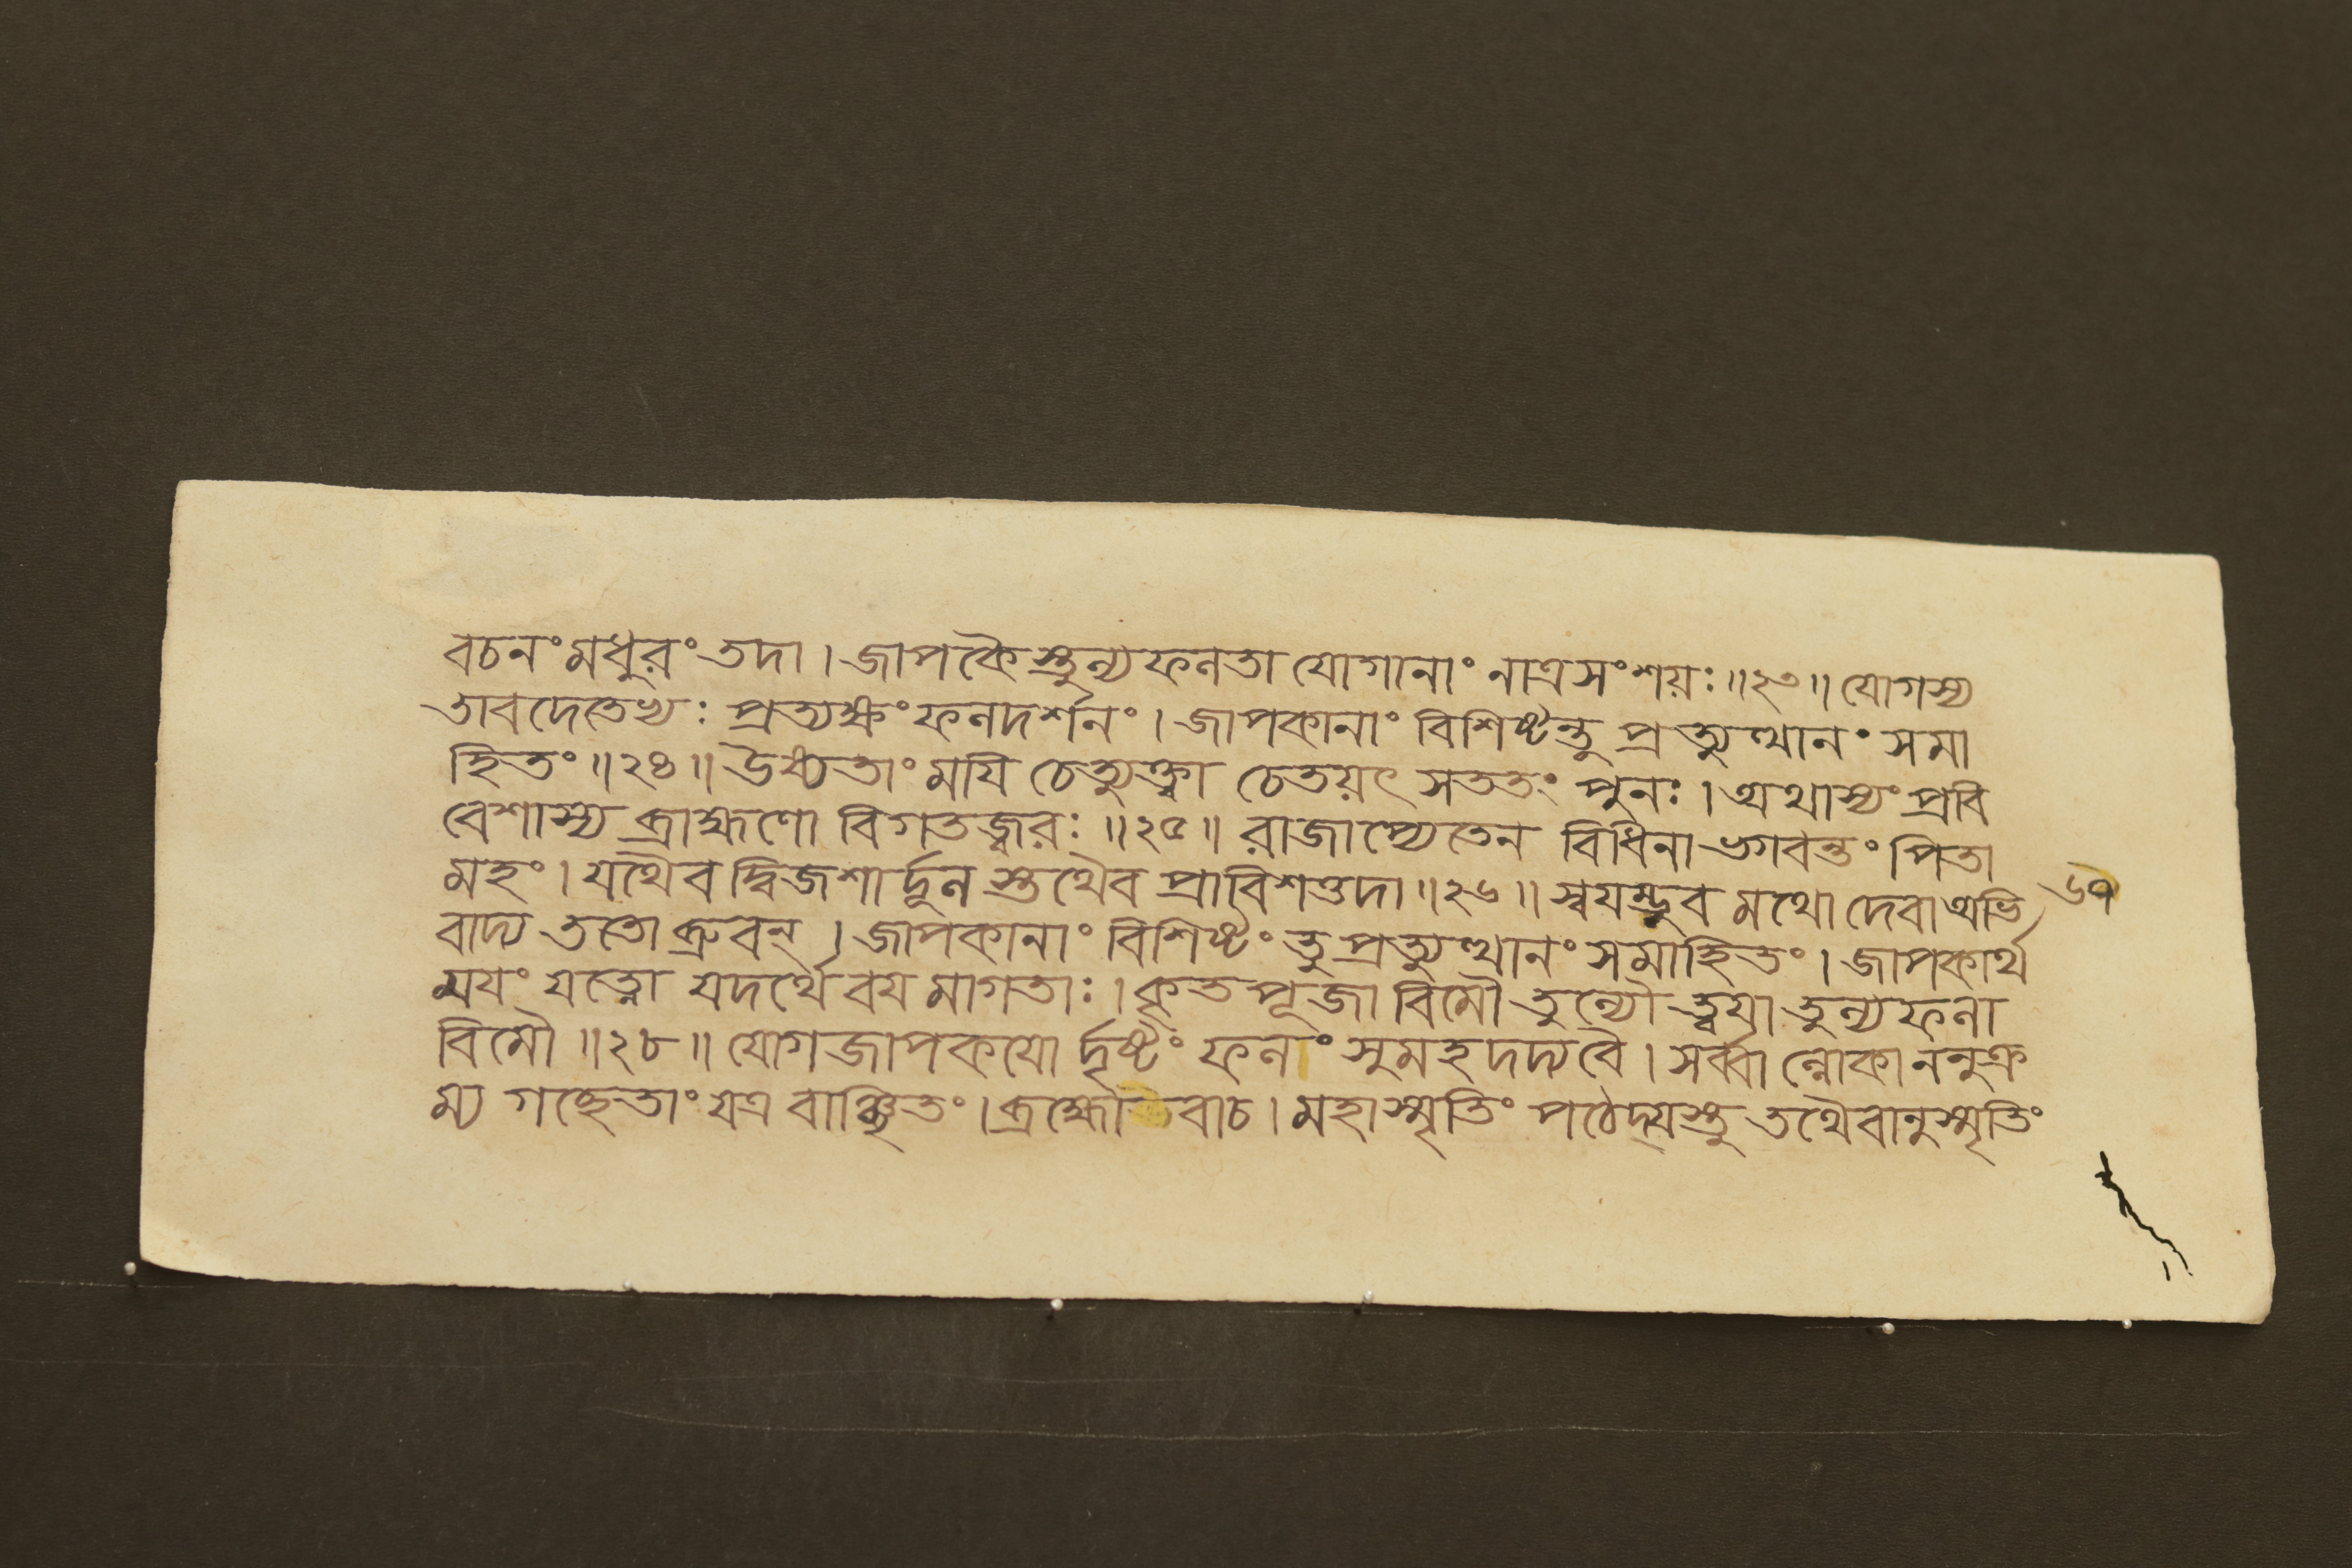 বচনং মধুরং তদা । জাপকৈ স্তুল্য ফলতা যোগানাং নাত্রসংশয়ঃ ॥২৩॥ যোগস্য
তাবদেতেভ্যঃ প্রত্যক্ষং ফলদর্শনং । জাপকানাং বিশিষ্টন্তু প্রত্যুত্থানং সমা
হিতং ॥২৪॥ উষ্যতাং ময়ি চেত্যুক্ত্বা চেতয়ৎ সততং পুনঃ । অথাস্যং প্রবি
বেশাস্য ব্রাহ্মণো বিগতজ্বরঃ ॥২৫॥ রাজাপ্যেতেন বিধিনা ভগবন্তং পিতা
মহং । যথৈব দ্বিজশার্দ্দূল স্তথৈব প্রাবিশত্তদা ॥২৬॥ স্বয়ম্ভুব মথো দেবা অভি
বাদ্য ততো ব্রুবন্ । জাপকানাং বিশিষ্টং তু প্রত্যুত্থানং সমাহিতং । জাপকার্থ
ময়ং যত্নো যদর্থে বয় মাগতাঃ । কৃতপূজা বিমৌ তুল্যৌ ত্বয়া তুল্যফলা
বিমৌ ॥২৮॥ যোগজাপকয়ো র্দৃষ্টং ফলং সুমহদদ্যবৈ । সর্ব্বা ল্লোকাননুক্র
ম্য গচ্ছেতাং যত্র বাঞ্ছিতং । ব্রহ্মোবাচ । মহাস্মৃতিং পঠেদ্যস্তু তথৈবানুস্মৃতিং
৬৭